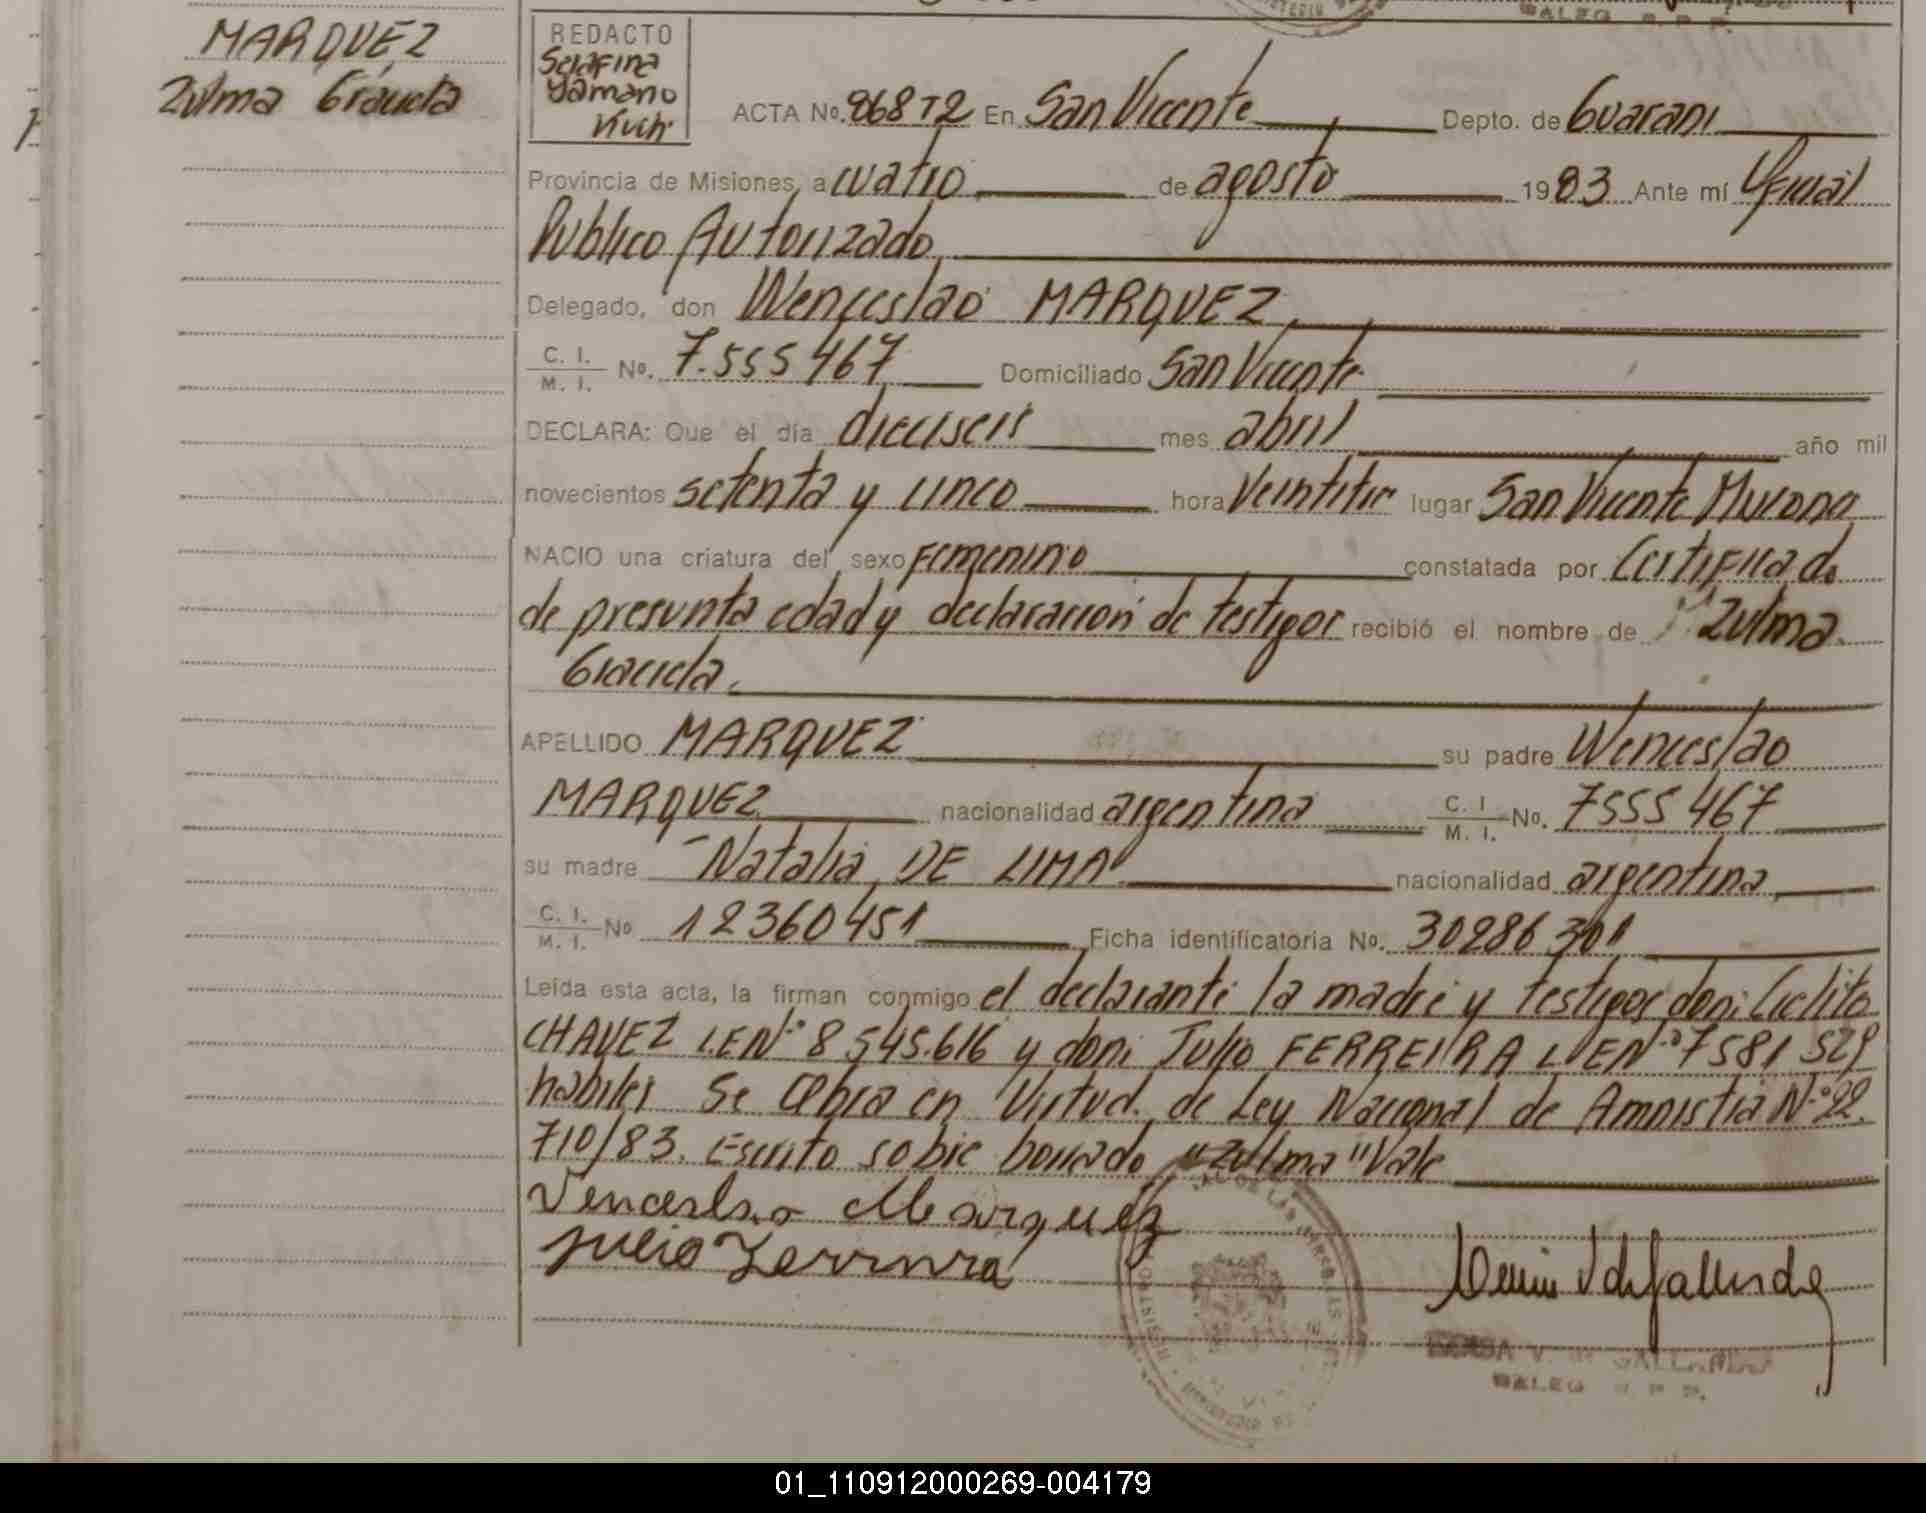 MARQUEZ
Zulma Graciela
REDACTO
Serafina
Yamano
ACTA No. 868 T2 En San Vicente Depto. de Guarani
Provincia de Misiones, a cuatro de agosto 1983 Ante mí Oficial
Publico Autorizado
Delegado, don Wenceslao MARQUEZ
C. I. / M. I. No. 7.555 467 Domiciliado San Vicente
DECLARA: Que el día dieciseis mes abril año mil
novecientos setenta y cinco hora Veintitres lugar San Vicente Misiones
NACIO una criatura del sexo Femenino constatada por Certificado
de presunta edad y declaracion de testigos recibió el nombre de Zulma
Graciela
APELLIDO MARQUEZ su padre Wenceslao
MARQUEZ nacionalidad argentina C. I. / M. I. No. 7555 467
su madre Natalia DE LIMA nacionalidad argentina
C. I. / M. I. No 12360451 Ficha identificatoria No. 30286301
Leída esta acta, la firman conmigo el declarante la madre y testigos don:
CHAVEZ L.E.Nº 8 545.616 y don: Julio FERREIRA L.E.Nº 7581 529
habiles Se labra en Virtud de Ley Nacional de Amnistia Nº 22.
710/83. Escrito sobre borrado "Zulma" Vale
Venceslao Marquez
Julio Ferreira
V. de GALLARDO
01_110912000269-004179